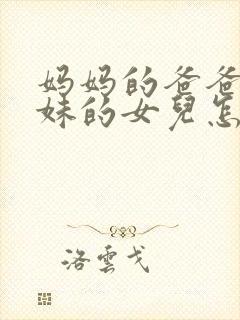 妈妈的爸爸
妹的女兒怎
洛雲戈